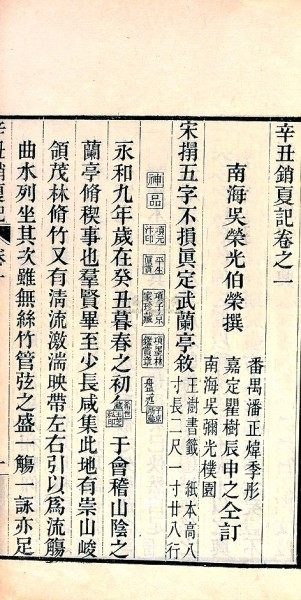 辛丑銷夏記卷之一
南海吳榮光伯榮撰
番禺潘正煒季彤
嘉定瞿樹辰申之仝訂
南海吳彌光樸園
宋搨五字不損眞定武蘭亭敘
王澍書籤 紙本高八
寸長二尺一寸廿八行
神品
項元
汴印
平生
眞賞
項子京
家珍藏
項墨林
鑑賞章
永和九年歲在癸丑暮春之初
于會稽山陰之
蘭亭脩稧事也羣賢畢至少長咸集此地有崇山峻
領茂林脩竹又有淸流激湍映帶左右引以爲流觴
曲水列坐其次雖無絲竹管弦之盛一觴一詠亦足
辛丑銷夏記